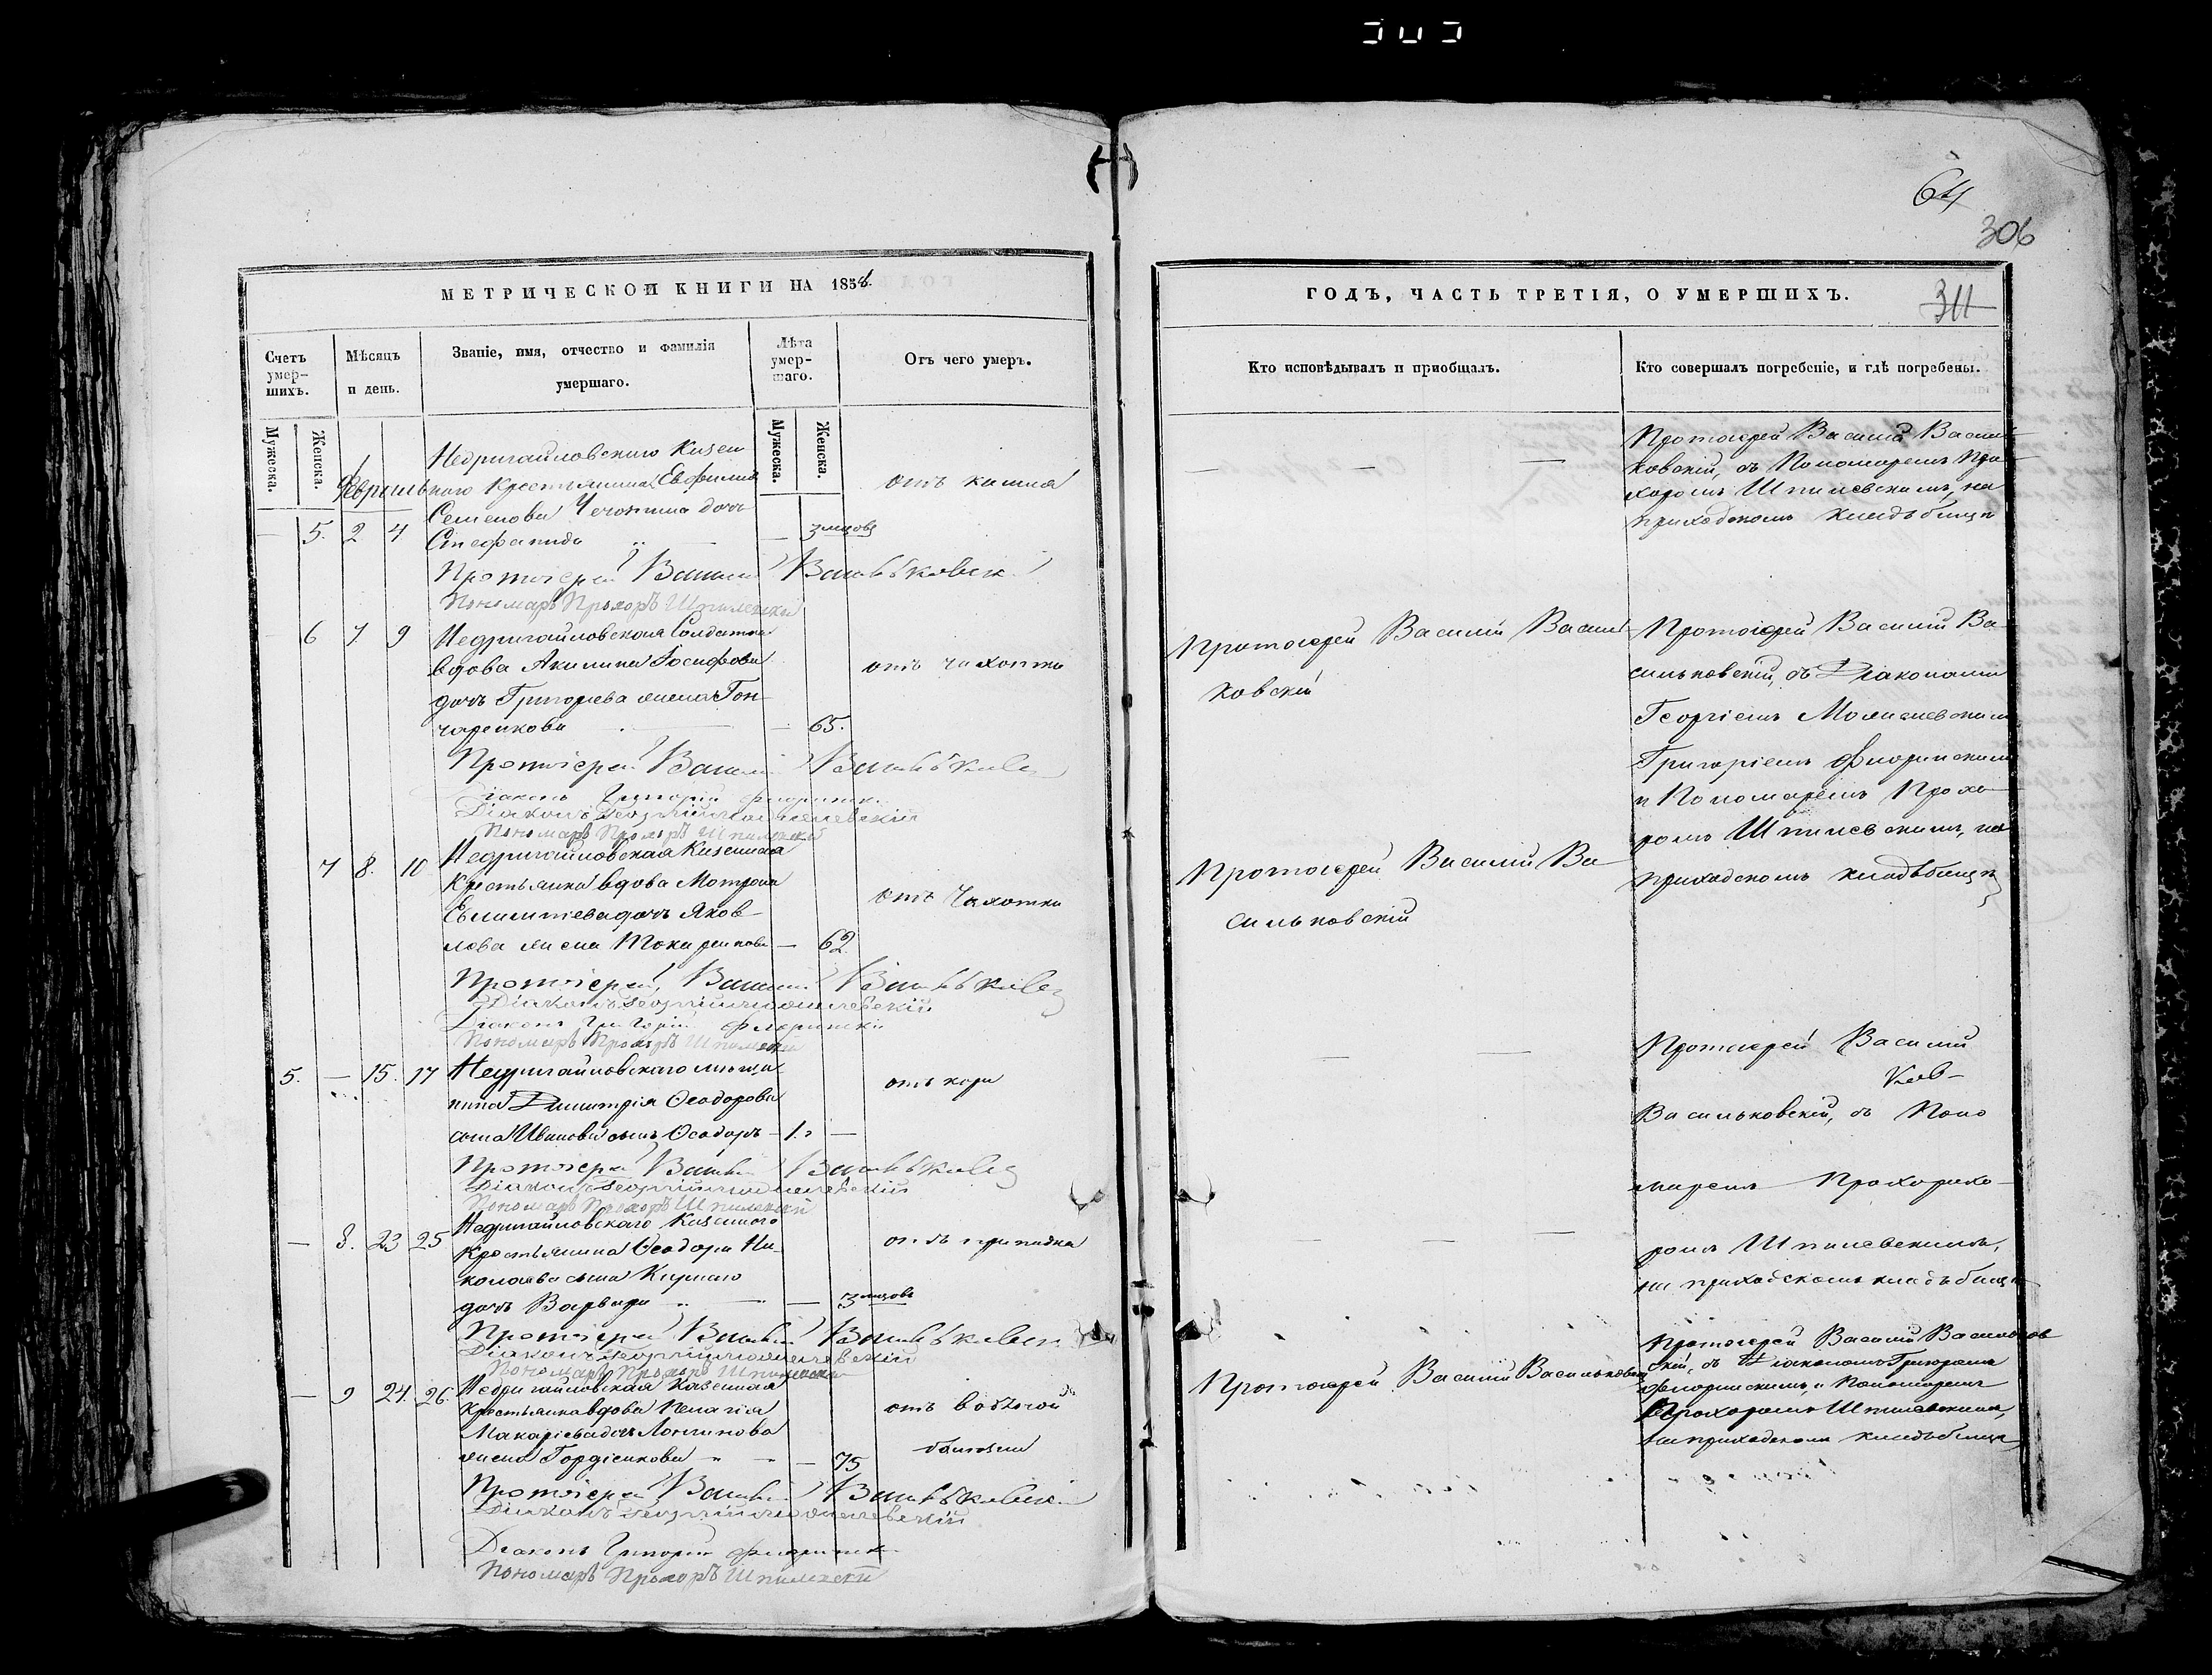 64
306
311
МЕТРИЧЕСКОЙ КНИГИ НА 1854
Счетъ умер-
шихъ.
Мѣсяцъ
и день.
Званіе, имя, отчество и фамилія
умершаго.
Лѣта
умер-
шаго.
Отъ чего умеръ.
Мужеска.
Женска.
Мужеска.
Женска.
Февраль
Недригайловскаго Казен
наго Крестьянина Евфимія
Семенова дочь
5. 2 4 Стефанида — 3 мцовъ
отъ кашля
Протоіерей Василій Васильковскій
Пономарь Прохоръ Шпилевскій
6 7 9 Недригайловская Солдатка
вдова Акилина Іосифова
дочь Григорьева жена Гон-
чаренкова — 65.
отъ чахотки
Протоіерей Василій Васильковскій
Діаконъ Григорій Флоринскій
Діаконъ Георгій
Пономарь Прохоръ Шпилевскій
7 8. 10 Недригайловская Казенная
Крестьянка вдова Мотрона
дочь Яков-
лева жена Токаренкова — 62
отъ Чахотки
Протоіерей Василій Васильковскій
Діаконъ Георгій
Діаконъ Григорій Флоринскій
Пономарь Прохоръ Шпилевскій
5. — 15. 17 Недригайловскаго мѣща
нина Димитрія Ѳеодорова
сына Иванова сынъ Ѳеодоръ — 1. —
отъ кори
Протоіерей Василій Васильковскій
Діаконъ Георгій
Пономарь Прохоръ Шпилевскій
— 8. 23 25 Недригайловскаго Казеннаго
Крестьянина Ѳеодора Ни-
колаева сына
дочь Варвара — 3 мцовъ
отъ припадка
Протоіерей Василій Васильковскій
Діаконъ Георгій
Пономарь Прохоръ Шпилевскій
— 9 24. 26. Недригайловская Казенная
Крестьянка вдова Пелагія
Макаріева дочь Логинова
жена Гордіенкова — 75
отъ водяной
болѣзни
Протоіерей Василій Васильковскій
Діаконъ Георгій
Діаконъ Григорій Флоринскій
Пономарь Прохоръ Шпилевскій
ГОДЪ, ЧАСТЬ ТРЕТІЯ, О УМЕРШИХЪ.
Кто исповѣдывалъ и приобщалъ.
Кто совершалъ погребеніе, и гдѣ погребены.
— — —
Протоіерей Василій Василь-
ковскій, съ Пономаремъ Про-
хоромъ Шпилевскимъ, на
приходскомъ кладбищѣ
Протоіерей Василій Василь-
ковскій
Протоіерей Василій Ва-
сильковскій, съ Діаконами
Георгіемъ
Григоріемъ Флоринскимъ
и Пономаремъ Прохо-
ромъ Шпилевскимъ, на
приходскомъ кладбищѣ
Протоіерей Василій Ва-
сильковскій
— —
Протоіерей Василій
Васильковскій, съ Поно
маремъ Прохо-
ромъ Шпилевскимъ,
на приходскомъ кладбищѣ
— — —
Протоіерей Василій Васильковскій
Протоіерей Василій Васильков
скій, съ Діакономъ Григоріемъ
Флоринскимъ и Пономаремъ
Прохоромъ Шпилевскимъ,
на приходскомъ кладбищѣ